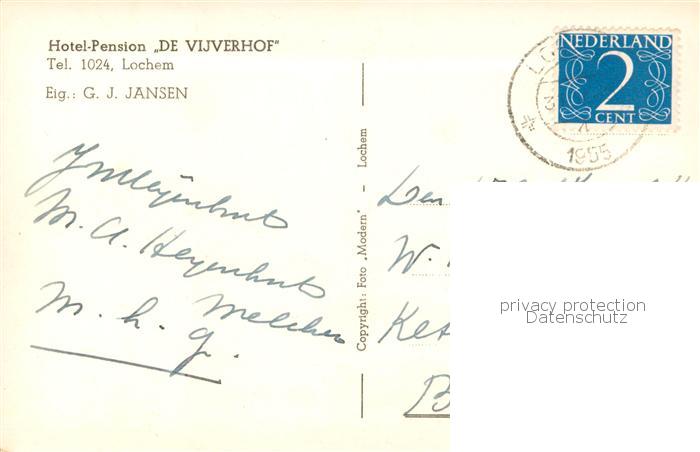 Hotel-Pension „DE VIJVERHOF"
Tel. 1024, Lochem
Eig.: G. J. JANSEN
M. A. Heyenhuts
M. h. g.
Copyright: Foto „Modern" - Lochem
NEDERLAND
2
CENT
LO
1955
Den
W.
privacy protection
Datenschutz